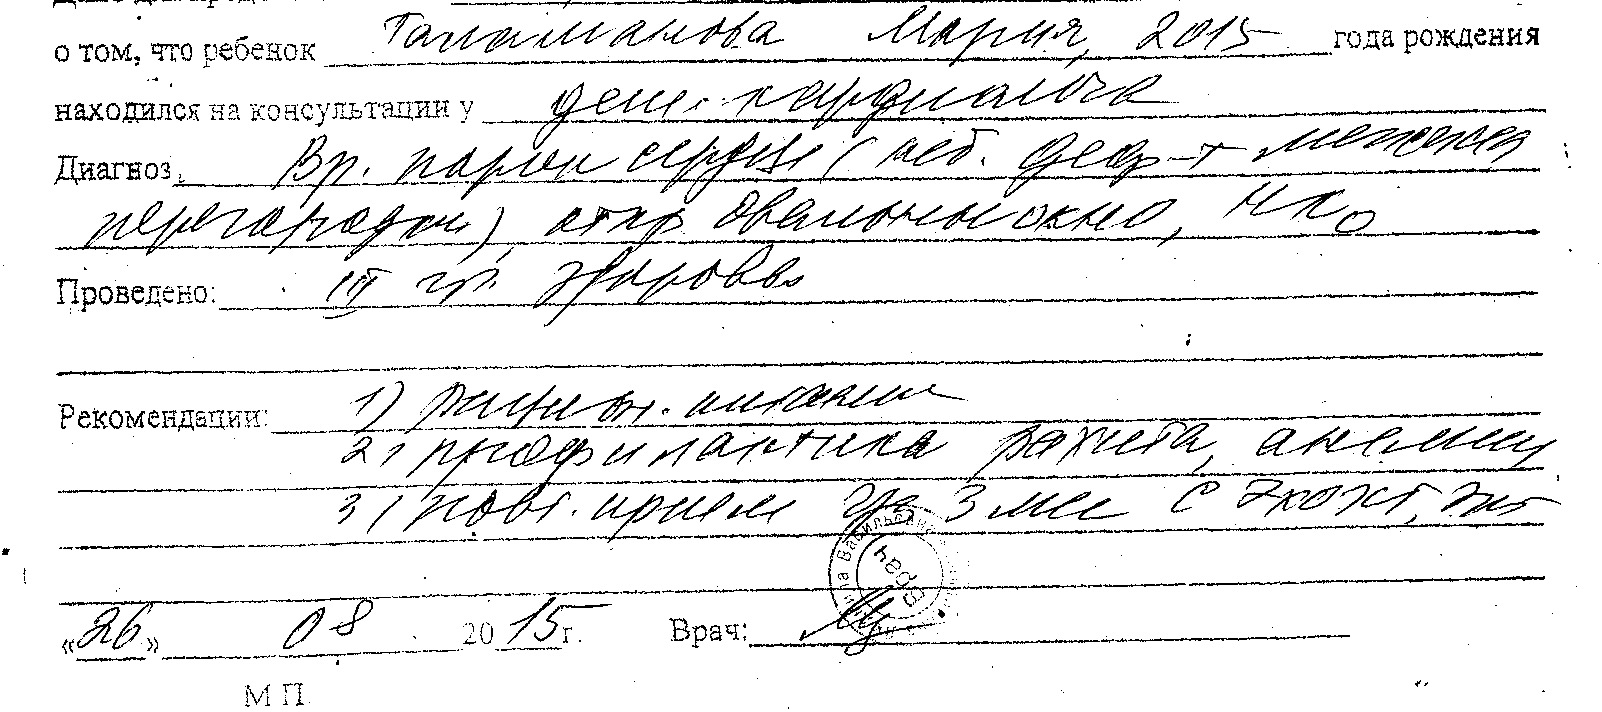 о том, что ребенок Таламанова Мария, 2015 года рождения
находился на консультации у дет. кардиолога
Диагноз: Вр. порок сердца ( неб. деф-т межжел
перегородки), откр овальное окно, НК0
Проведено: III гр. здоровья
Рекомендации: 1) рацион. питание
2) профилактика рахита, анемии
3) повт. прием чз 3 мес с ЭХОКГ, ЭКГ
врач
«26» 08 2015 г. Врач:
М П